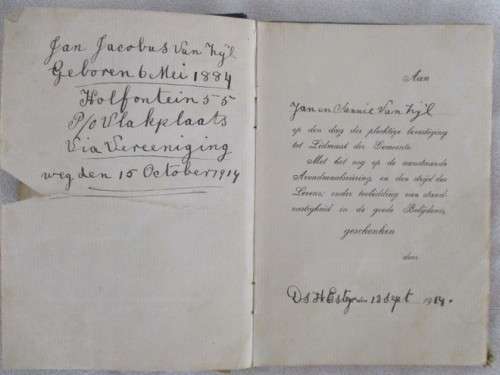 Jan Jacobus Van Zÿl
Geboren 6 Mei 1884
Holfontein 55
P/o Vlakplaats
Via Vereeniging
weg den 15 October 1914
Aan
Jan en Sannie Van Zÿl
op den dag der plechtige bevestiging
tot Lidmaat der Gemeente.
Met het oog op de aanstaande
Avondmaalsviering en den strijd des
Levens, onder toebidding van stand-
vastigheid in de goede Belijdenis,
geschonken
door
Ds den 13 Sept 1914.